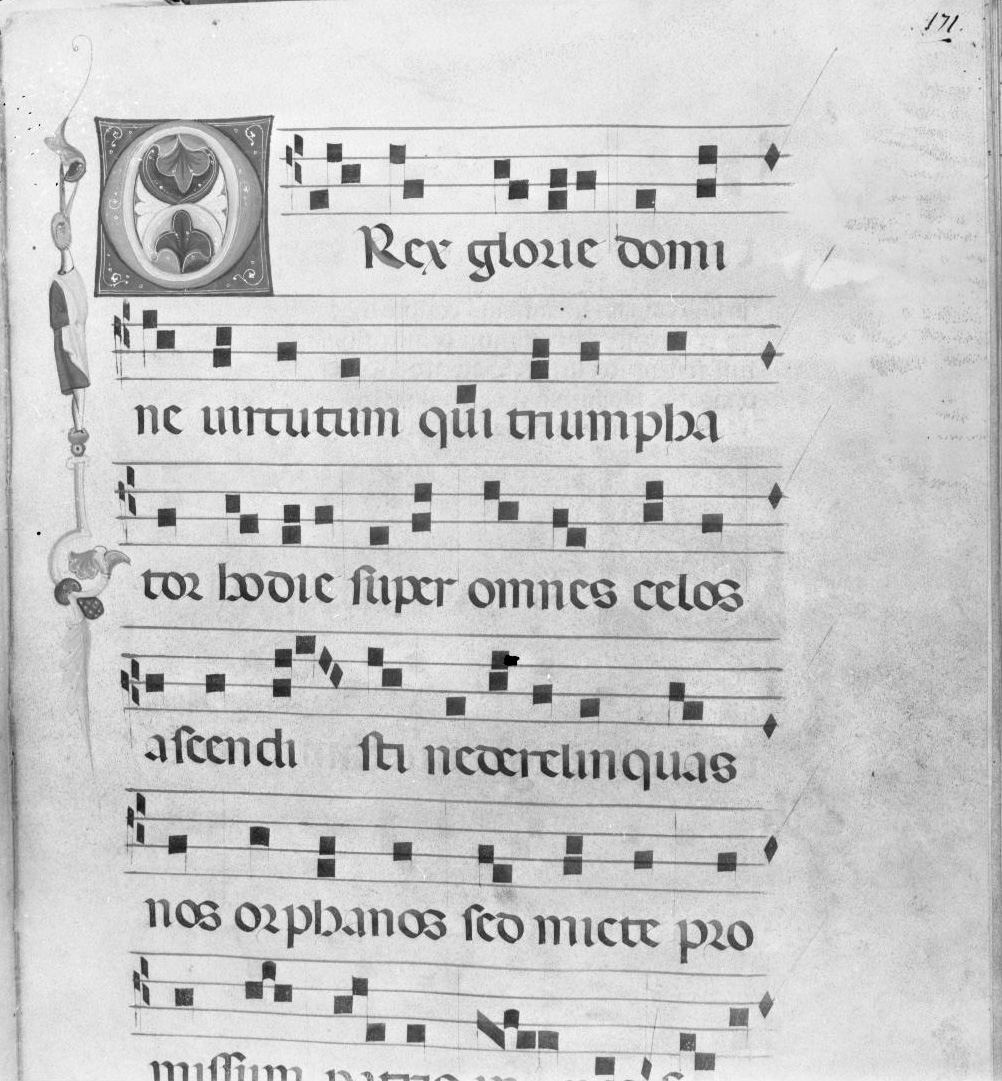 171.
O Rex glorie domi
ne uirtutum qui triumpha
tor hodie super omnes celos
ascendi sti nederelinquas
nos orphanos sed micte pro
missum patris in